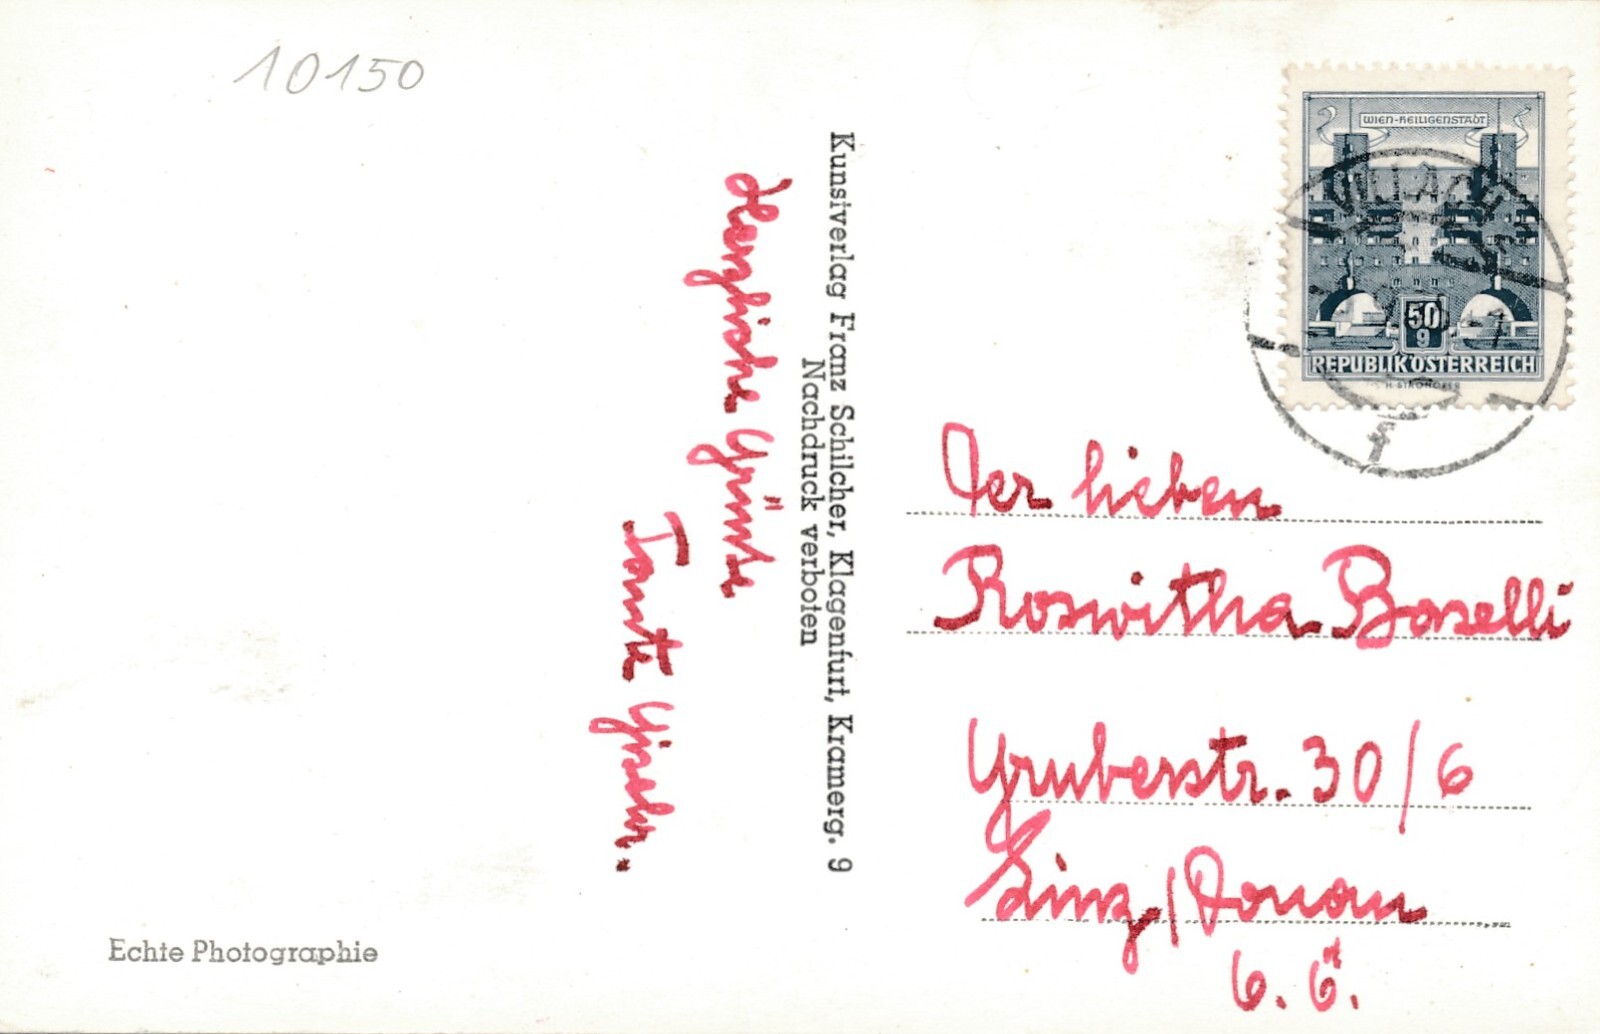 10150
Kunstverlag Franz Schilcher, Klagenfurt, Kramerg. 9
Nachdruck verboten
Herzliche Grüsse
Tante
Echte Photographie
WIEN-HEILIGENSTADT
VILLACH
50
g
REPUBLIK ÖSTERREICH
H. STROHOFER
f
Der lieben
Roswitha Boselli
Gruberstr. 30/6
Linz/Donau